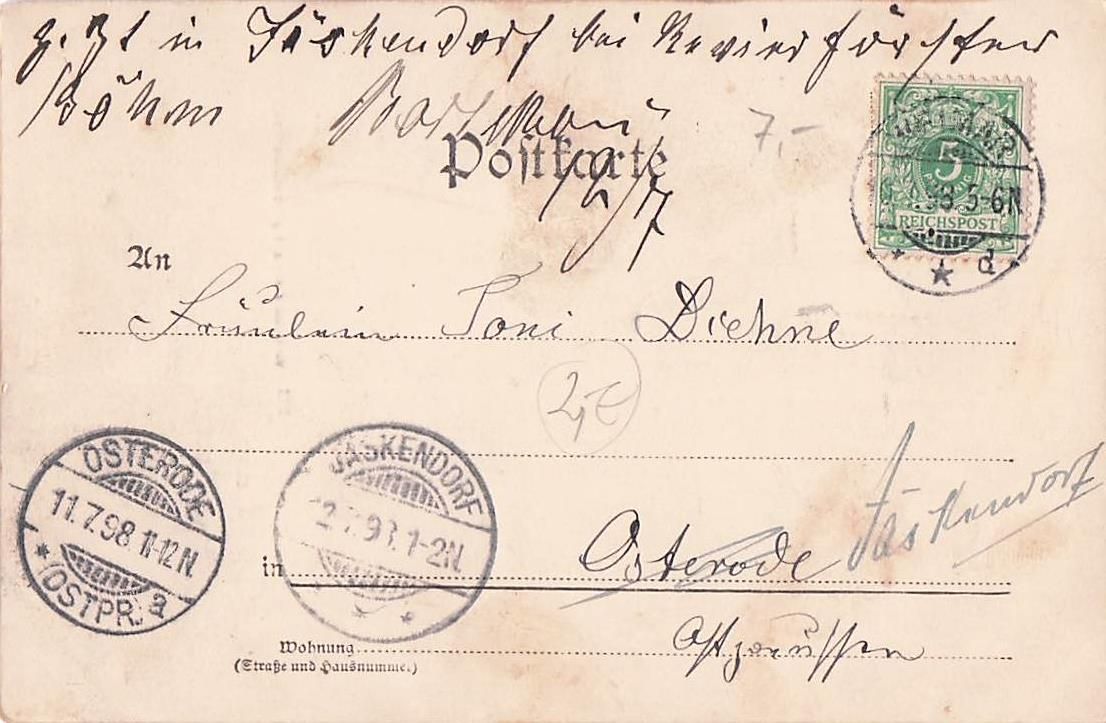 z. Zt in Jäskendorf bei Revierförster
Böhm
12/7
Postkarte
7,-
5
PFENNIG
REICHSPOST
98. 5-6N
d
An
Fräulein Toni Diehne
2,-
OSTERODE
11.7.98. 11-12N.
(OSTPR.) a
JÄSKENDORF
12.7.98. 1-2N.
in Osterode Jäskendorf
Ostpreussen
Wohnung
(Straße und Hausnummer)